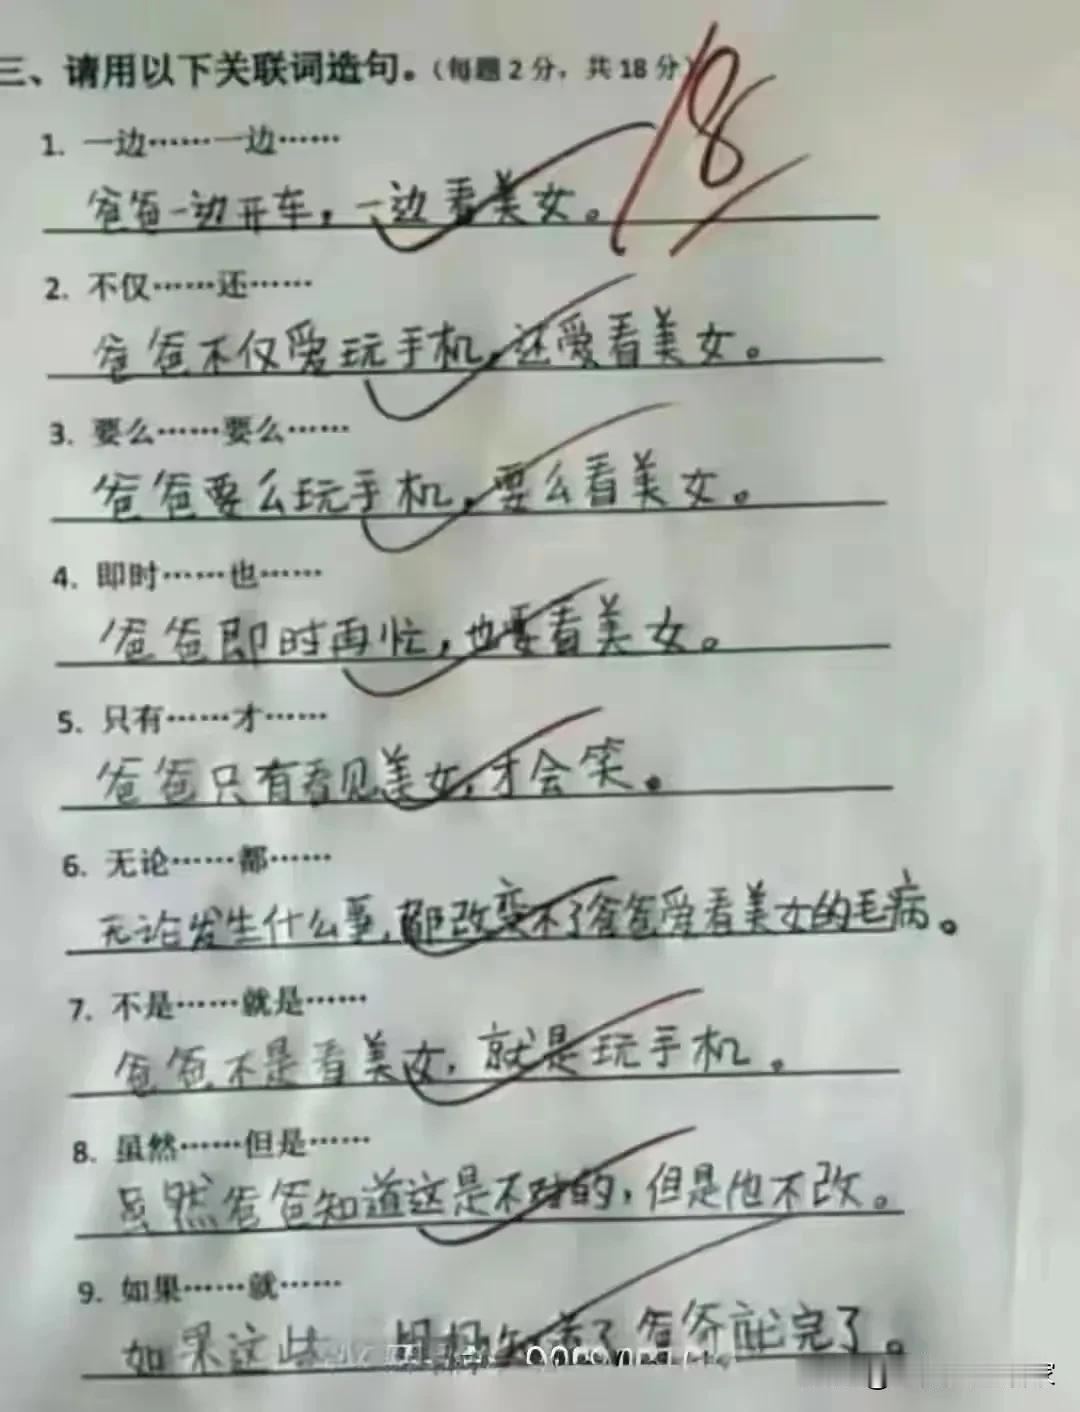 三、请用以下关联词造句。(每题2分，共18分)
18
1. 一边……一边……
爸爸一边开车，一边看美女。
2. 不仅……还……
爸爸不仅爱玩手机，还爱看美女。
3. 要么……要么……
爸爸要么玩手机，要么看美女。
4. 即时……也……
爸爸即时再忙，也要看美女。
5. 只有……才……
爸爸只有看见美女，才会笑。
6. 无论……都……
无论发生什么事，都改变不了爸爸爱看美女的毛病。
7. 不是……就是……
爸爸不是看美女，就是玩手机。
8. 虽然……但是……
虽然爸爸知道这是不对的，但是他不改。
9. 如果……就……
如果这些 妈妈知道了爸爸就完了。